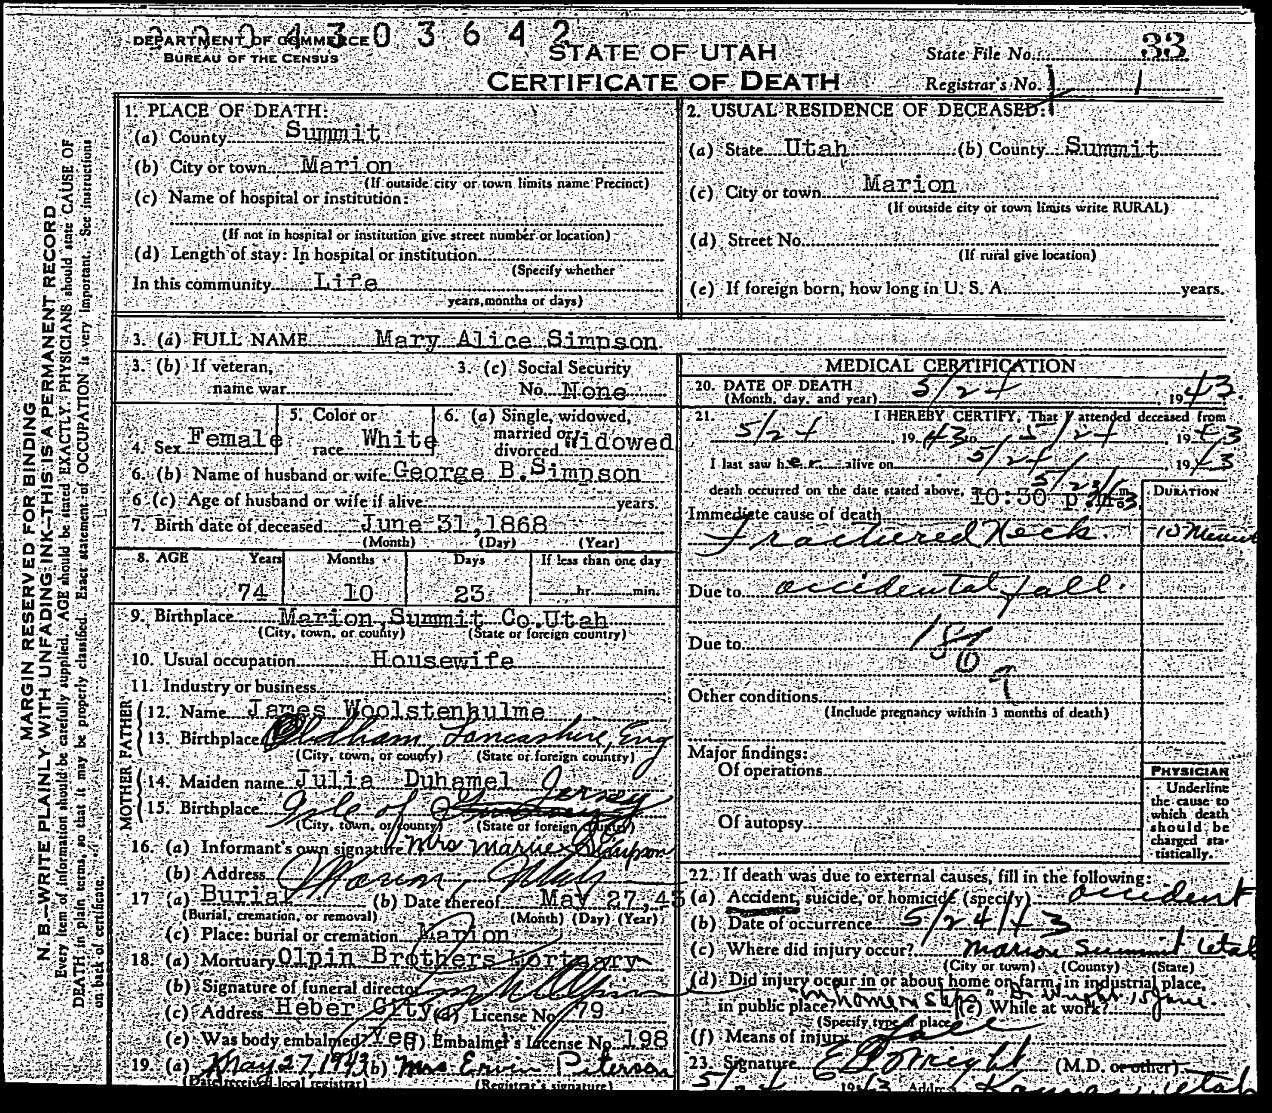 2004303642
DEPARTMENT OF COMMERCE
BUREAU OF THE CENSUS
STATE OF UTAH
CERTIFICATE OF DEATH
State File No. 33
Registrar's No. 1
MARGIN RESERVED FOR BINDING
N. B.—WRITE PLAINLY WITH UNFADING INK—THIS IS A PERMANENT RECORD
Every item of information should be carefully supplied. AGE should be stated EXACTLY. PHYSICIANS should state CAUSE OF
DEATH in plain terms, so that it may be properly classified. Exact statement of OCCUPATION is very important. See instructions
on back of certificate.
1. PLACE OF DEATH:
(a) County Summit
(b) City or town Marion
(If outside city or town limits name Precinct)
(c) Name of hospital or institution:
(If not in hospital or institution give street number or location)
(d) Length of stay: In hospital or institution
(Specify whether
In this community Life
years, months or days)
2. USUAL RESIDENCE OF DECEASED:
(a) State Utah (b) County Summit
(c) City or town Marion
(If outside city or town limits write RURAL)
(d) Street No.
(If rural give location)
(e) If foreign born, how long in U. S. A. years.
3. (a) FULL NAME Mary Alice Simpson
3. (b) If veteran, name war
3. (c) Social Security No. None
4. Sex Female
5. Color or race White
6. (a) Single, widowed, married or divorced Widowed
6. (b) Name of husband or wife George B. Simpson
6 (c) Age of husband or wife if alive years.
7. Birth date of deceased June 31, 1868
(Month) (Day) (Year)
8. AGE Years Months Days If less than one day
74 10 23 hr. min.
9. Birthplace Marion, Summit Co. Utah
(City, town, or county) (State or foreign country)
10. Usual occupation Housewife
11. Industry or business
FATHER
12. Name James Woolstenhulme
13. Birthplace Oldham, Lancashire, Eng
(City, town, or county) (State or foreign country)
MOTHER
14. Maiden name Julia Duhamel
15. Birthplace Isle of Jersey
(City, town, or county) (State or foreign country)
16. (a) Informant's own signature Mrs Marive Simpson
(b) Address Marion, Utah
17 (a) Burial (b) Date thereof May 27, 43
(Burial, cremation, or removal) (Month) (Day) (Year)
(c) Place: burial or cremation Marion
18. (a) Mortuary Olpin Brothers Mortuary
(b) Signature of funeral director
(c) Address Heber City (d) License No. 79
(e) Was body embalmed? Yes (f) Embalmer's License No. 198
19. (a) May 27, 1943 (b) Mrs. Ervin Peterson
(Date received local registrar) (Registrar's signature)
MEDICAL CERTIFICATION
20. DATE OF DEATH 5/24, 1943.
(Month, day, and year)
21. I HEREBY CERTIFY, That I attended deceased from
5/24, 1943 to 5/24, 1943
I last saw her alive on 5/24, 1943
death occurred on the date stated above, 10:30 p. m.
DURATION
Immediate cause of death
Fractured Neck. 15 Minut
Due to accidental fall.
Due to
186
Other conditions
(Include pregnancy within 3 months of death)
Major findings:
Of operations
Of autopsy
PHYSICIAN
Underline
the cause to
which death
should be
charged sta-
tistically.
22. If death was due to external causes, fill in the following:
(a) Accident, suicide, or homicide (specify) accident
(b) Date of occurrence 5/24/43
(c) Where did injury occur? Marion Summit Utah
(City or town) (County) (State)
(d) Did injury occur in or about home on farm, in industrial place,
in public place?
(Specify type of place) (e) While at work?
(f) Means of injury fall
23. Signature (M.D. or other)
5/24 1943 Address Kamas, Utah